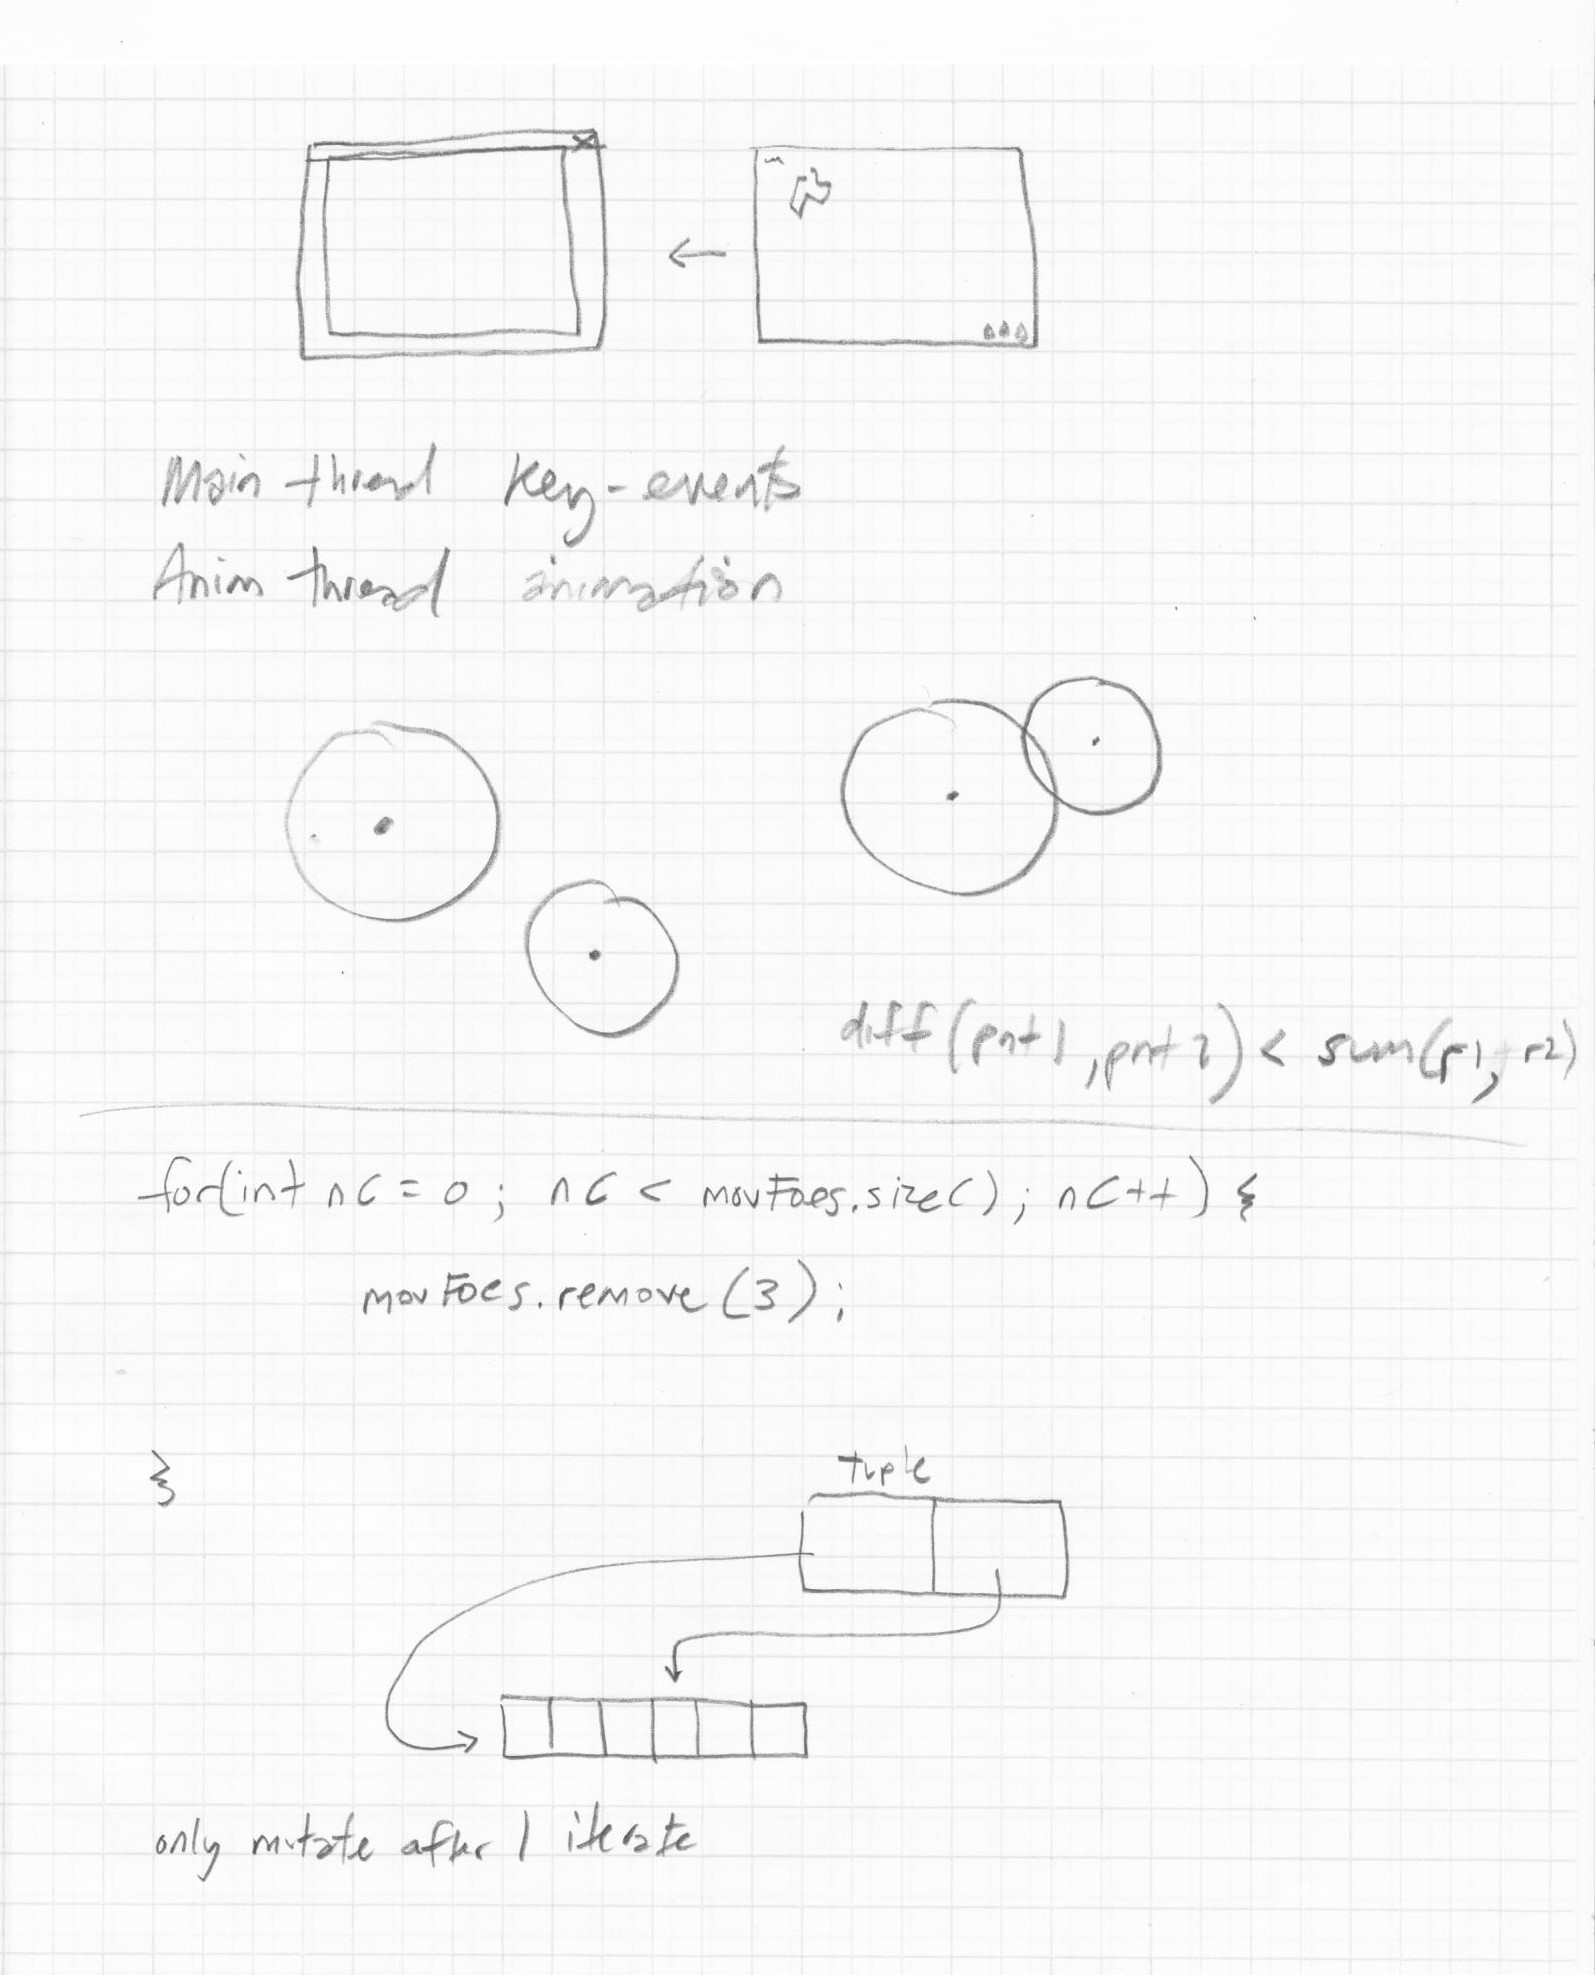 Main thread key-events
Anim thread animation
diff(pnt1, pnt2) < sum(r1, r2)
for(int nC = 0; nC < movFoes.size(); nC++) {
movFoes.remove(3);
}
tuple
only mutate after I iterate